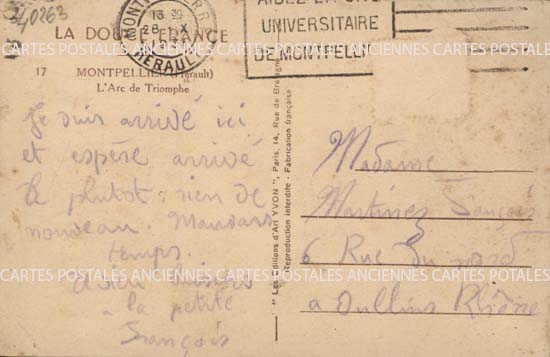 340263
LA DOUCE FRANCE
17 MONTPELLIER (Hérault)
L'Arc de Triomphe
MONTPELLIER
13
28 X
HERAULT
AIDEZ LA CITÉ
UNIVERSITAIRE
DE MONTPELLIER
Je suis arrivé ici
et espère arrivé
le plutot : rien de
nouveau. Mauvais
temps.
à la petite
François
"Les Editions d'Art YVON", Paris, 14, Rue de Bretagne
Reproduction interdite - Fabrication française
Madame
Martinez François
6 Rue du Nord
a Oullins Rhône
CARTES POSTALES ANCIENNES CARTES POSTALES ANCIENNES CARTES POSTALES